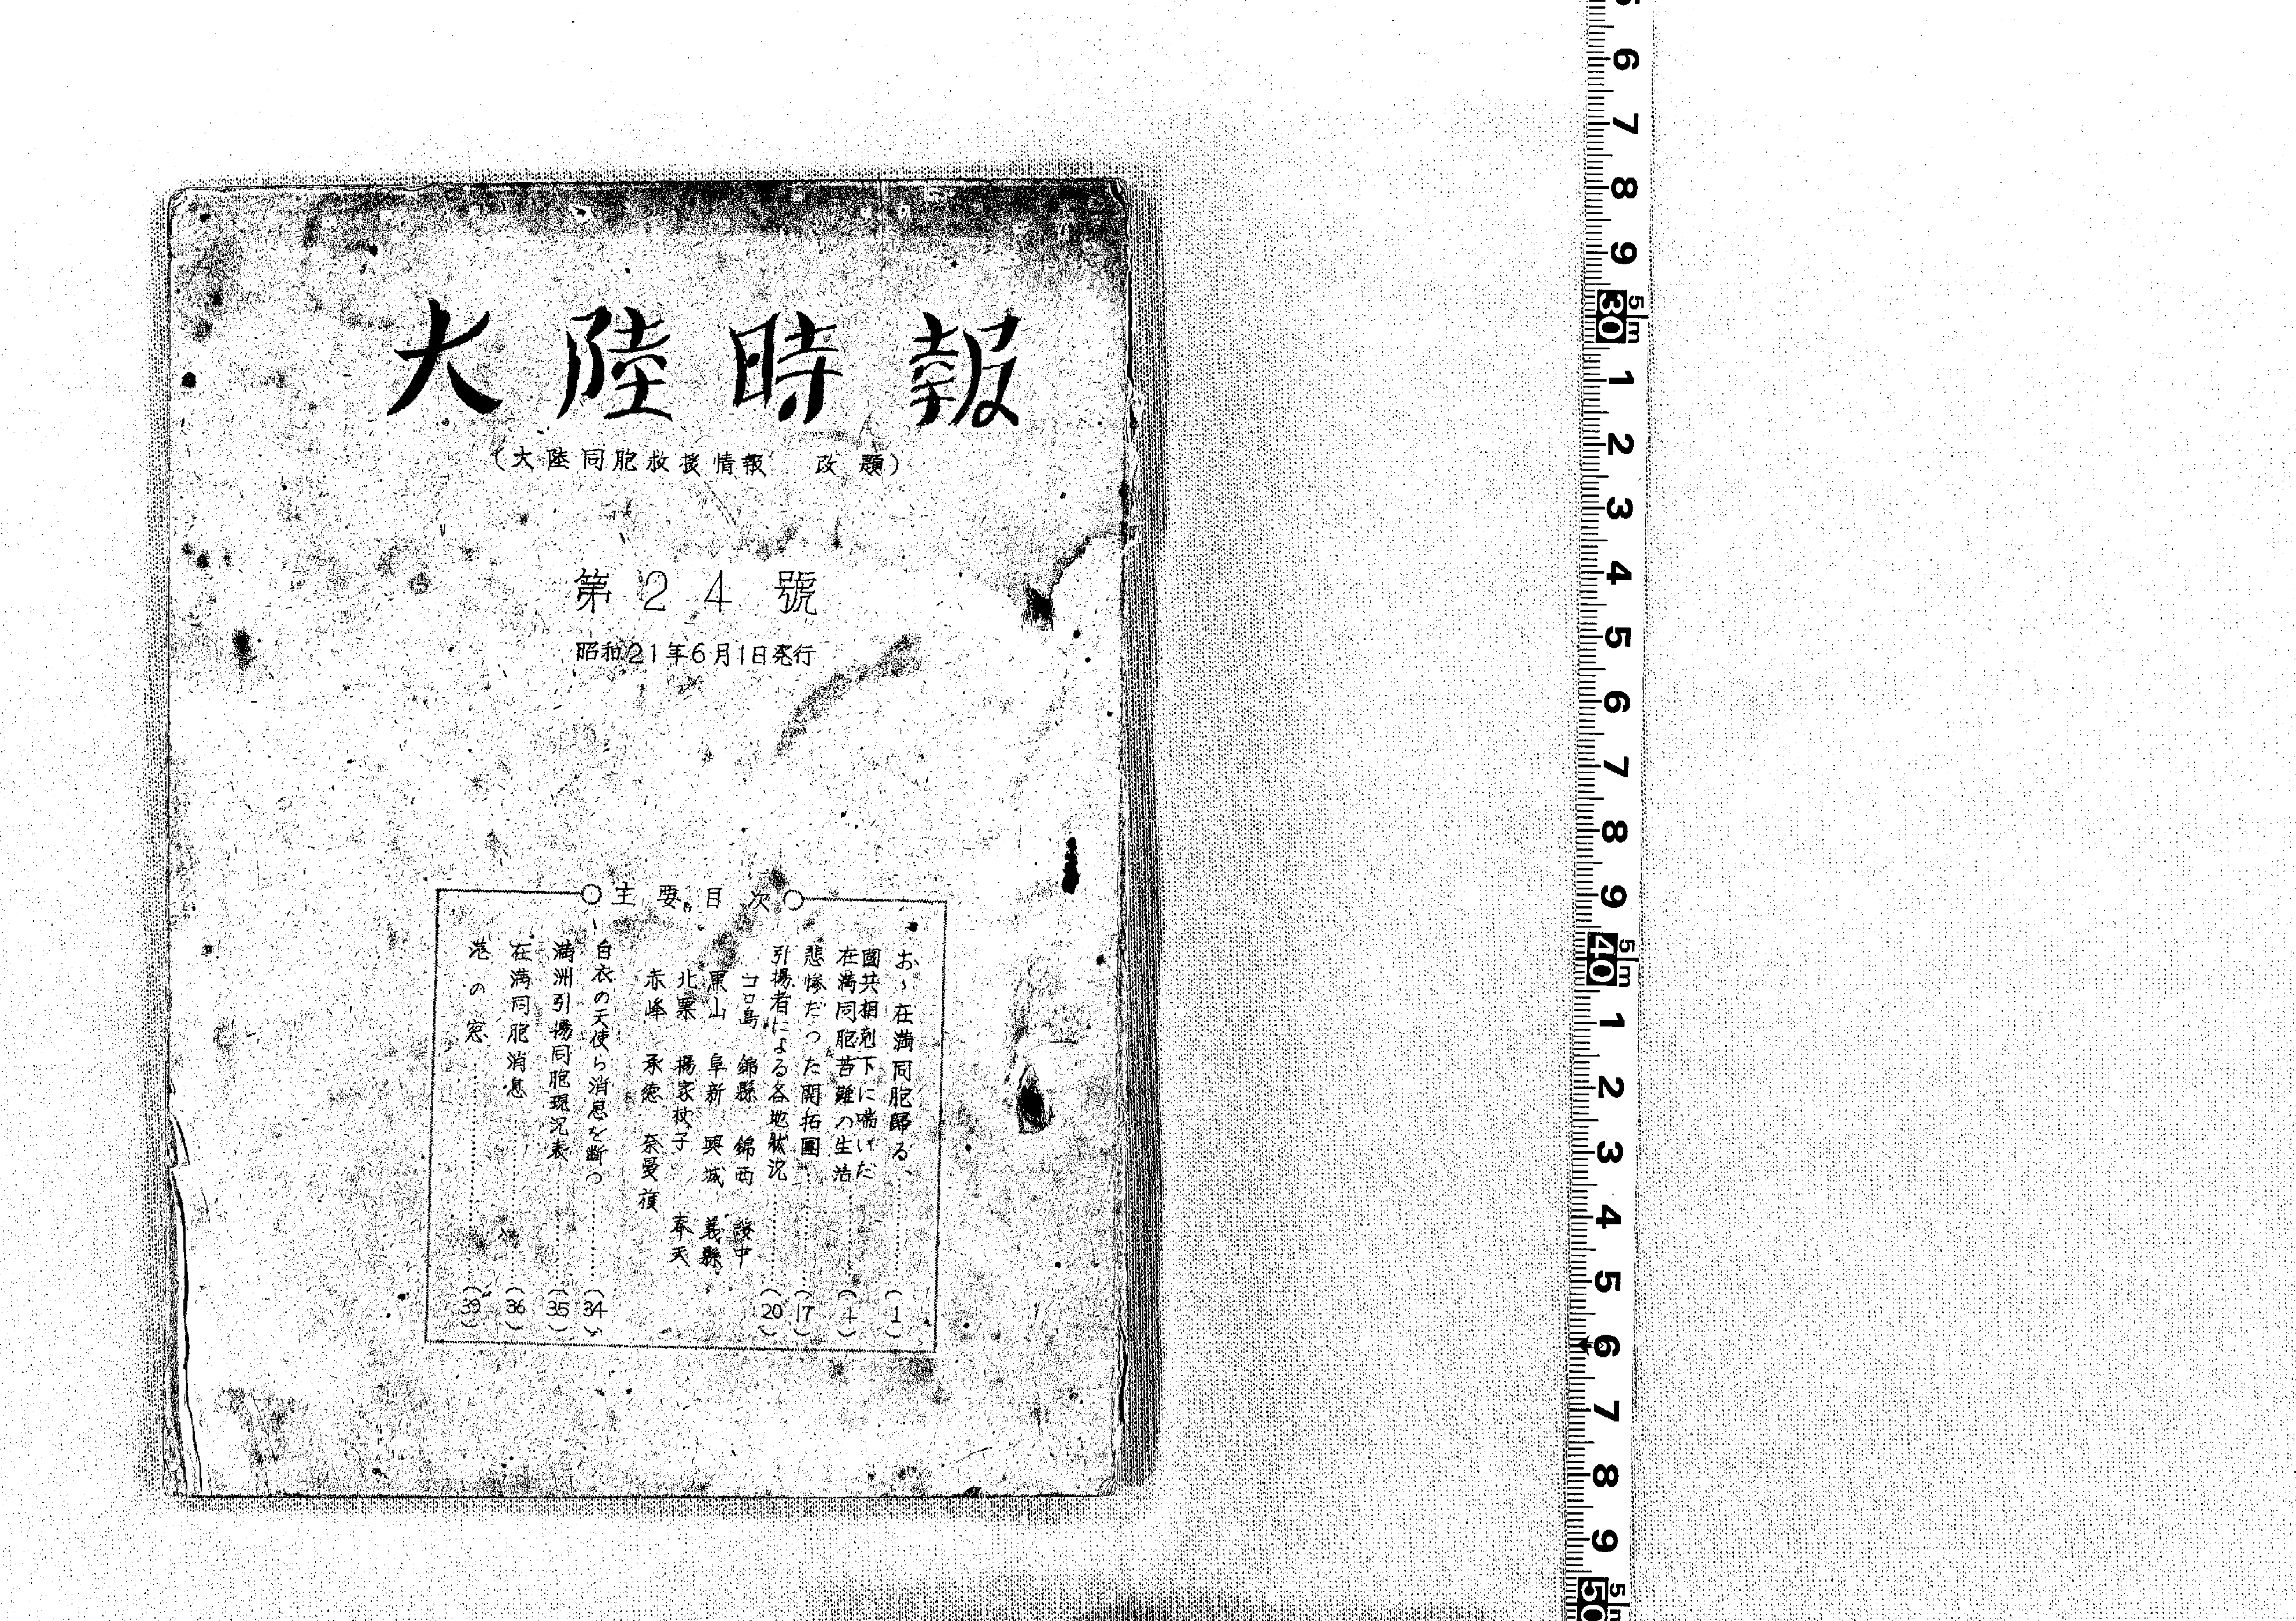 大陸時報
(大陸同胞救援情報 改題)
第24號
昭和21年6月1日発行
主要目次
お〜在満同胞歸る (1)
國共相剋下に喘いだ
在満同胞苦難の生活 (4)
悲惨だった開拓團 (17)
引揚者による各地状況 (20)
コロ島 錦縣 錦西 綏中
黒山 阜新 興城 義縣
北票 楊家杖子 奉天
赤峰 承徳 奈曼旗
白衣の天使ら消息を断つ (34)
満洲引揚同胞現況表 (35)
在満同胞消息 (36)
港の窓 (39)
6
7
8
9
5m
30
1
2
3
4
5
6
7
8
9
5m
40
1
2
3
4
5
6
7
8
9
50